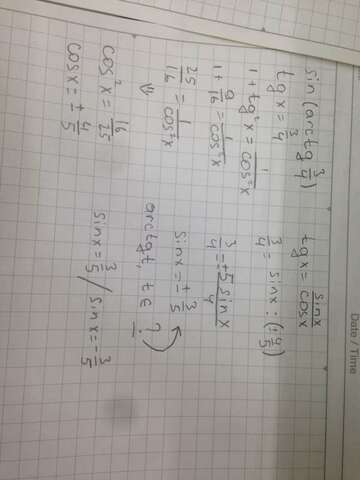 Date / Time
sin(arctg 3/4)
tg x = 3/4
1 + tg²x = 1/cos²x
1 + 9/16 = 1/cos²x
25/16 = 1/cos²x
⇓
cos²x = 16/25
cosx = ± 4/5
tgx = sinx/cosx
3/4 = sinx : (±4/5)
3/4 = ±5 sinx/4
sinx = ± 3/5
arctgt, t∈ ?
sinx = 3/5 / sinx = -3/5